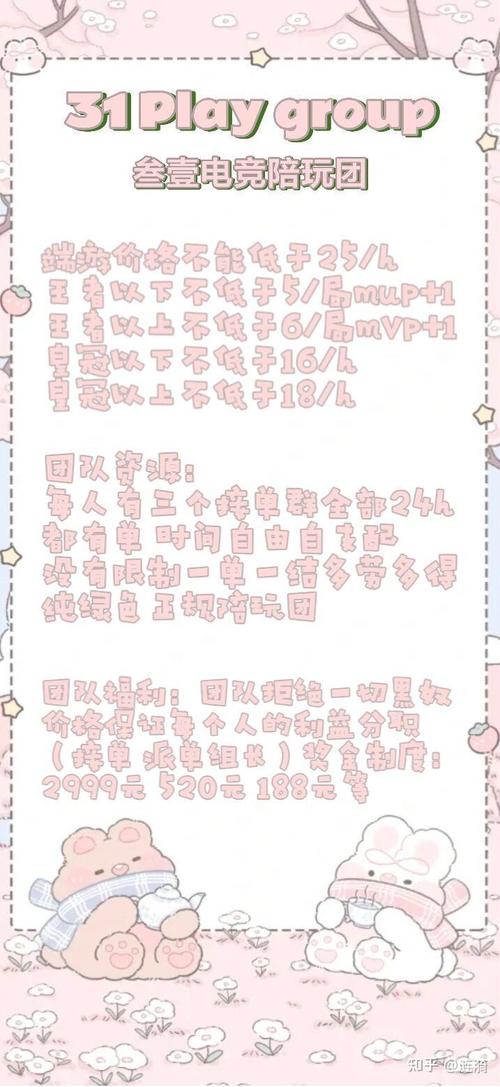 31 Play group
叁壹电竞陪玩团
端游价格不能低于25/h
王者以下不低于5/局mup+1
王者以上不低于6/局mvp+1
皇冠以下不低于16/h
皇冠以上不低于18/h
团队资源：
每人有三个接单群全部24h
都有单 时间自由自支配
没有限制一单一结多劳多得
纯绿色正规陪玩团
团队福利：团队拒绝一切黑奴
价格保证每个人的利益分职
（接单 派单组长）奖金制度：
2999元 520元 188元等
知乎 @涟漪